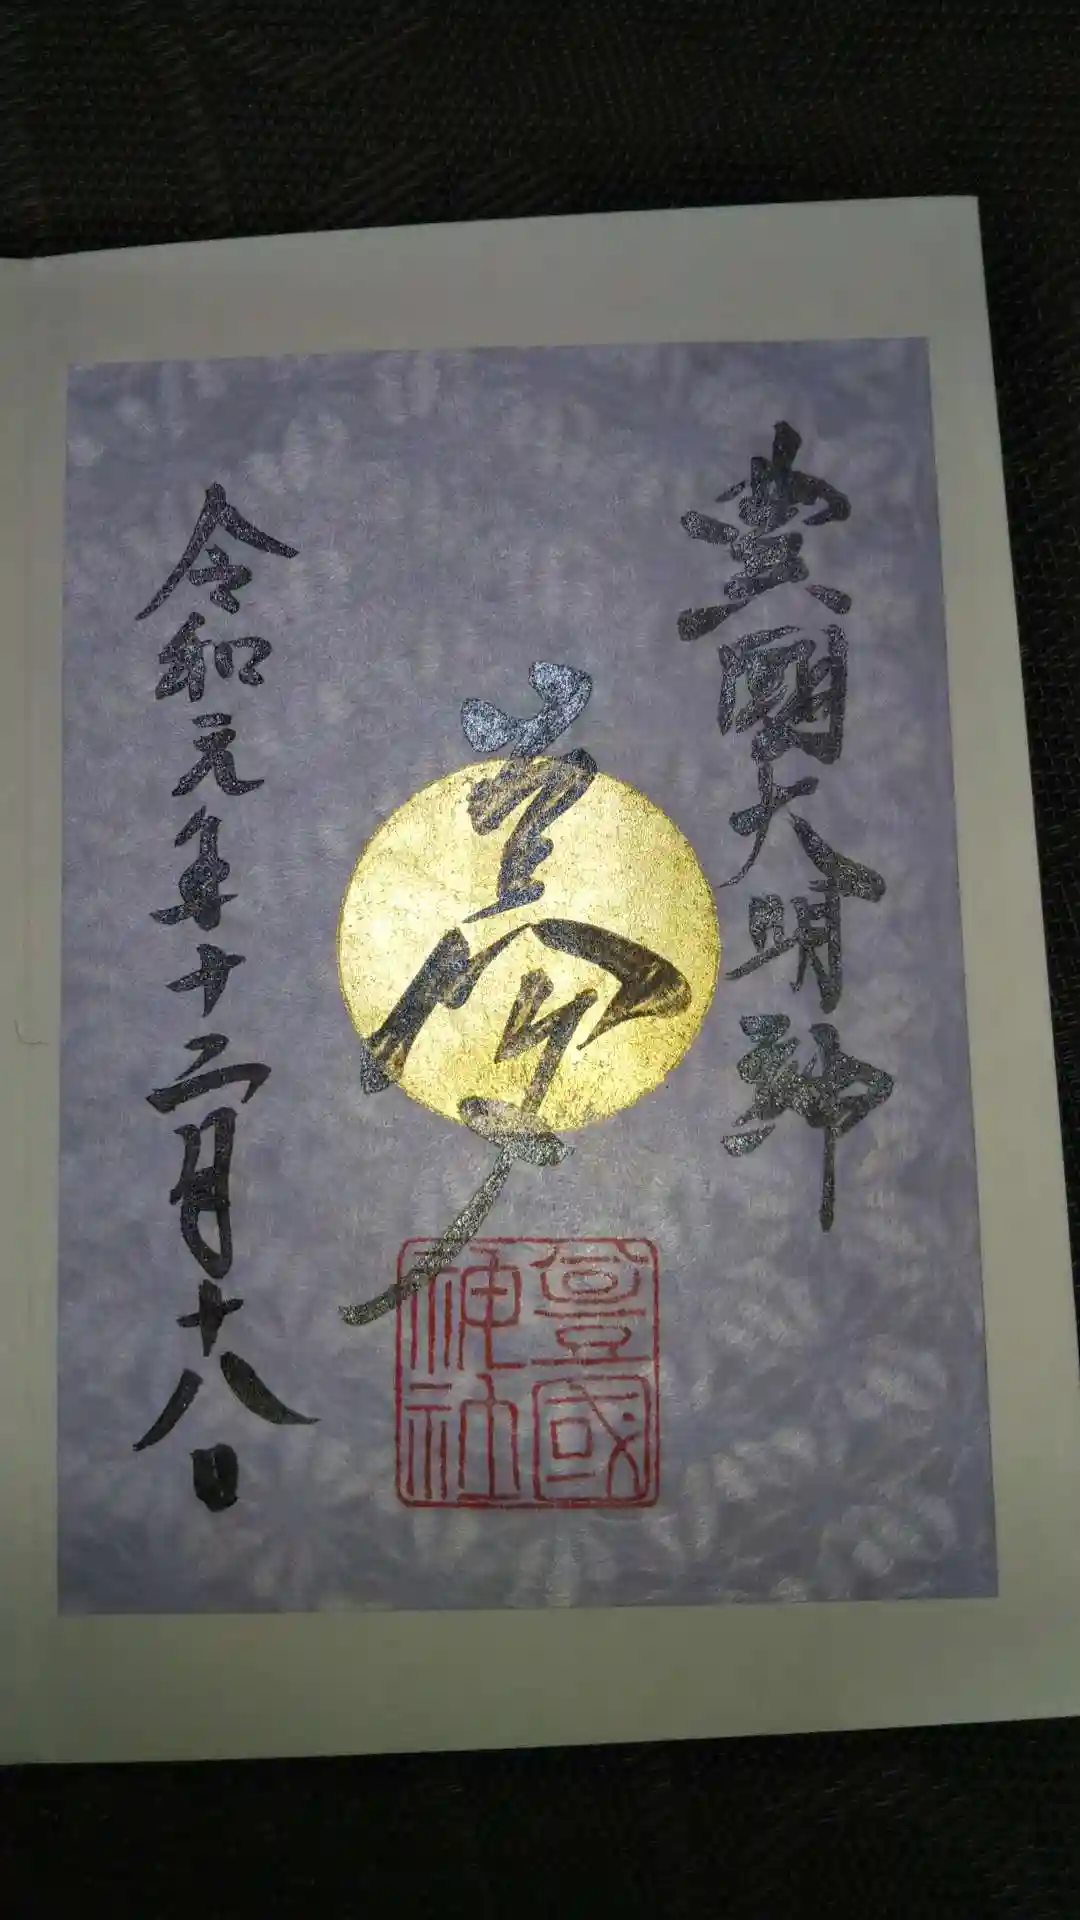 豊國大明神
夢
令和元年十二月十八日
豊國
神社